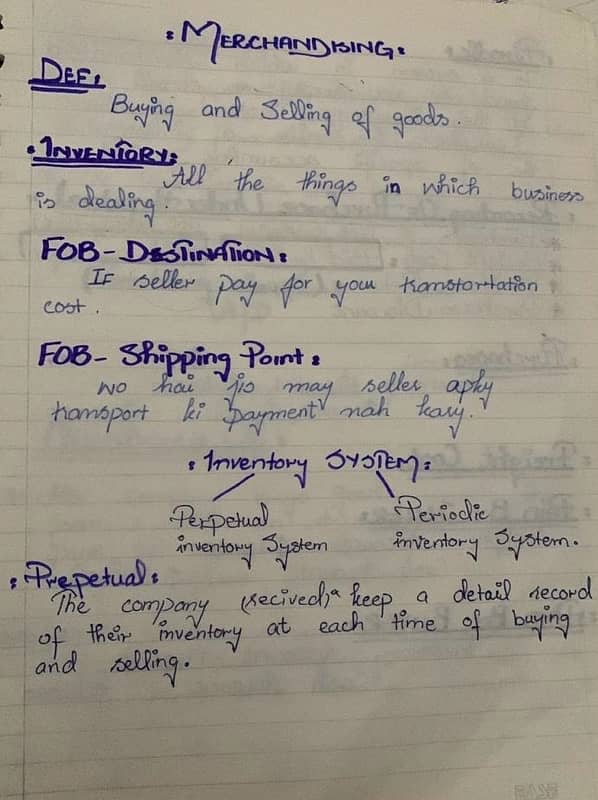 : MERCHANDISING:
DEF:
Buying and Selling of goods.
• INVENTORY:
All the things in which business
is dealing.
FOB - DESTINATION:
IF seller pay for your transtortation
cost.
FOB - Shipping Point:
wo hai jis may seller apky
transport ki payment nah kary.
: Inventory SYSTEM:
Perpetual
inventory System
Periodic
inventory System.
: Prepetual:
The company (recived) keep a detail record
of their inventory at each time of buying
and selling.